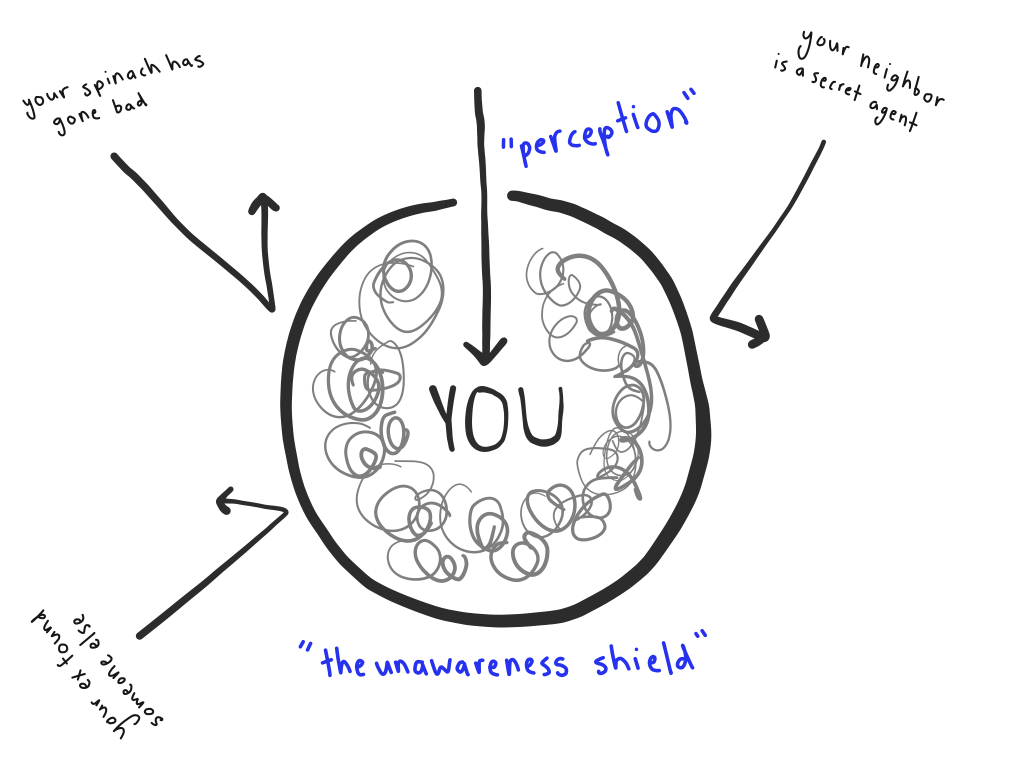 your spinach has
gone bad
your neighbor
is a secret agent
"perception"
YOU
your ex found
someone else
"the unawareness shield"